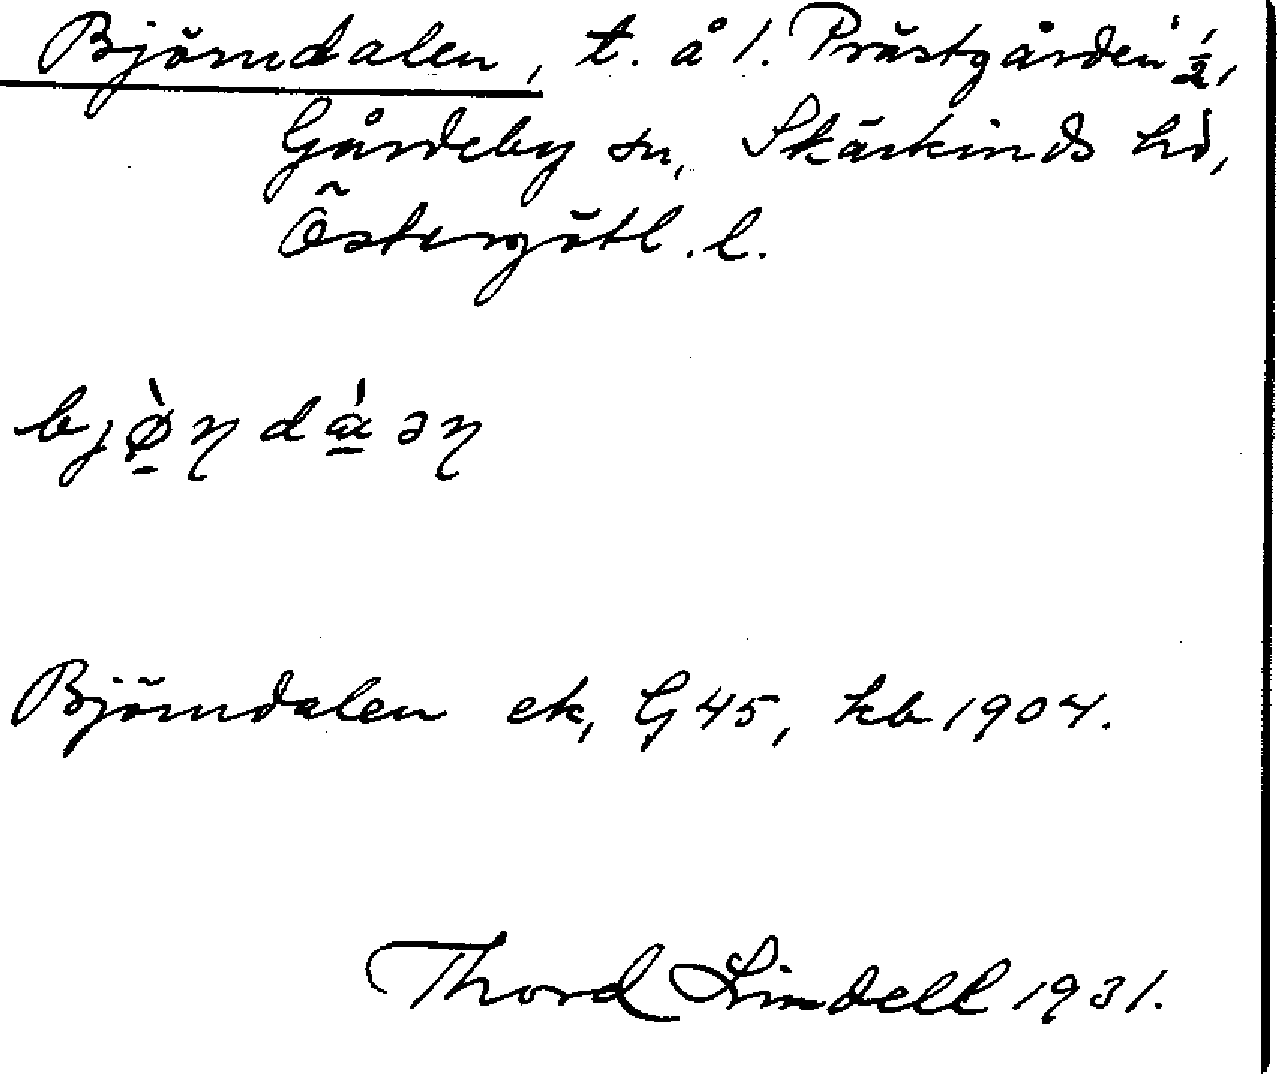 Björndalen, t. å l. Prästgården ½,
Gårdeby sn, Skärkinds hd,
Östergötl. l.
bjø̱̀ꞃdá̱əꞃ
Björndalen ek, G 45, kb 1904.
Thord Lindell 1931.